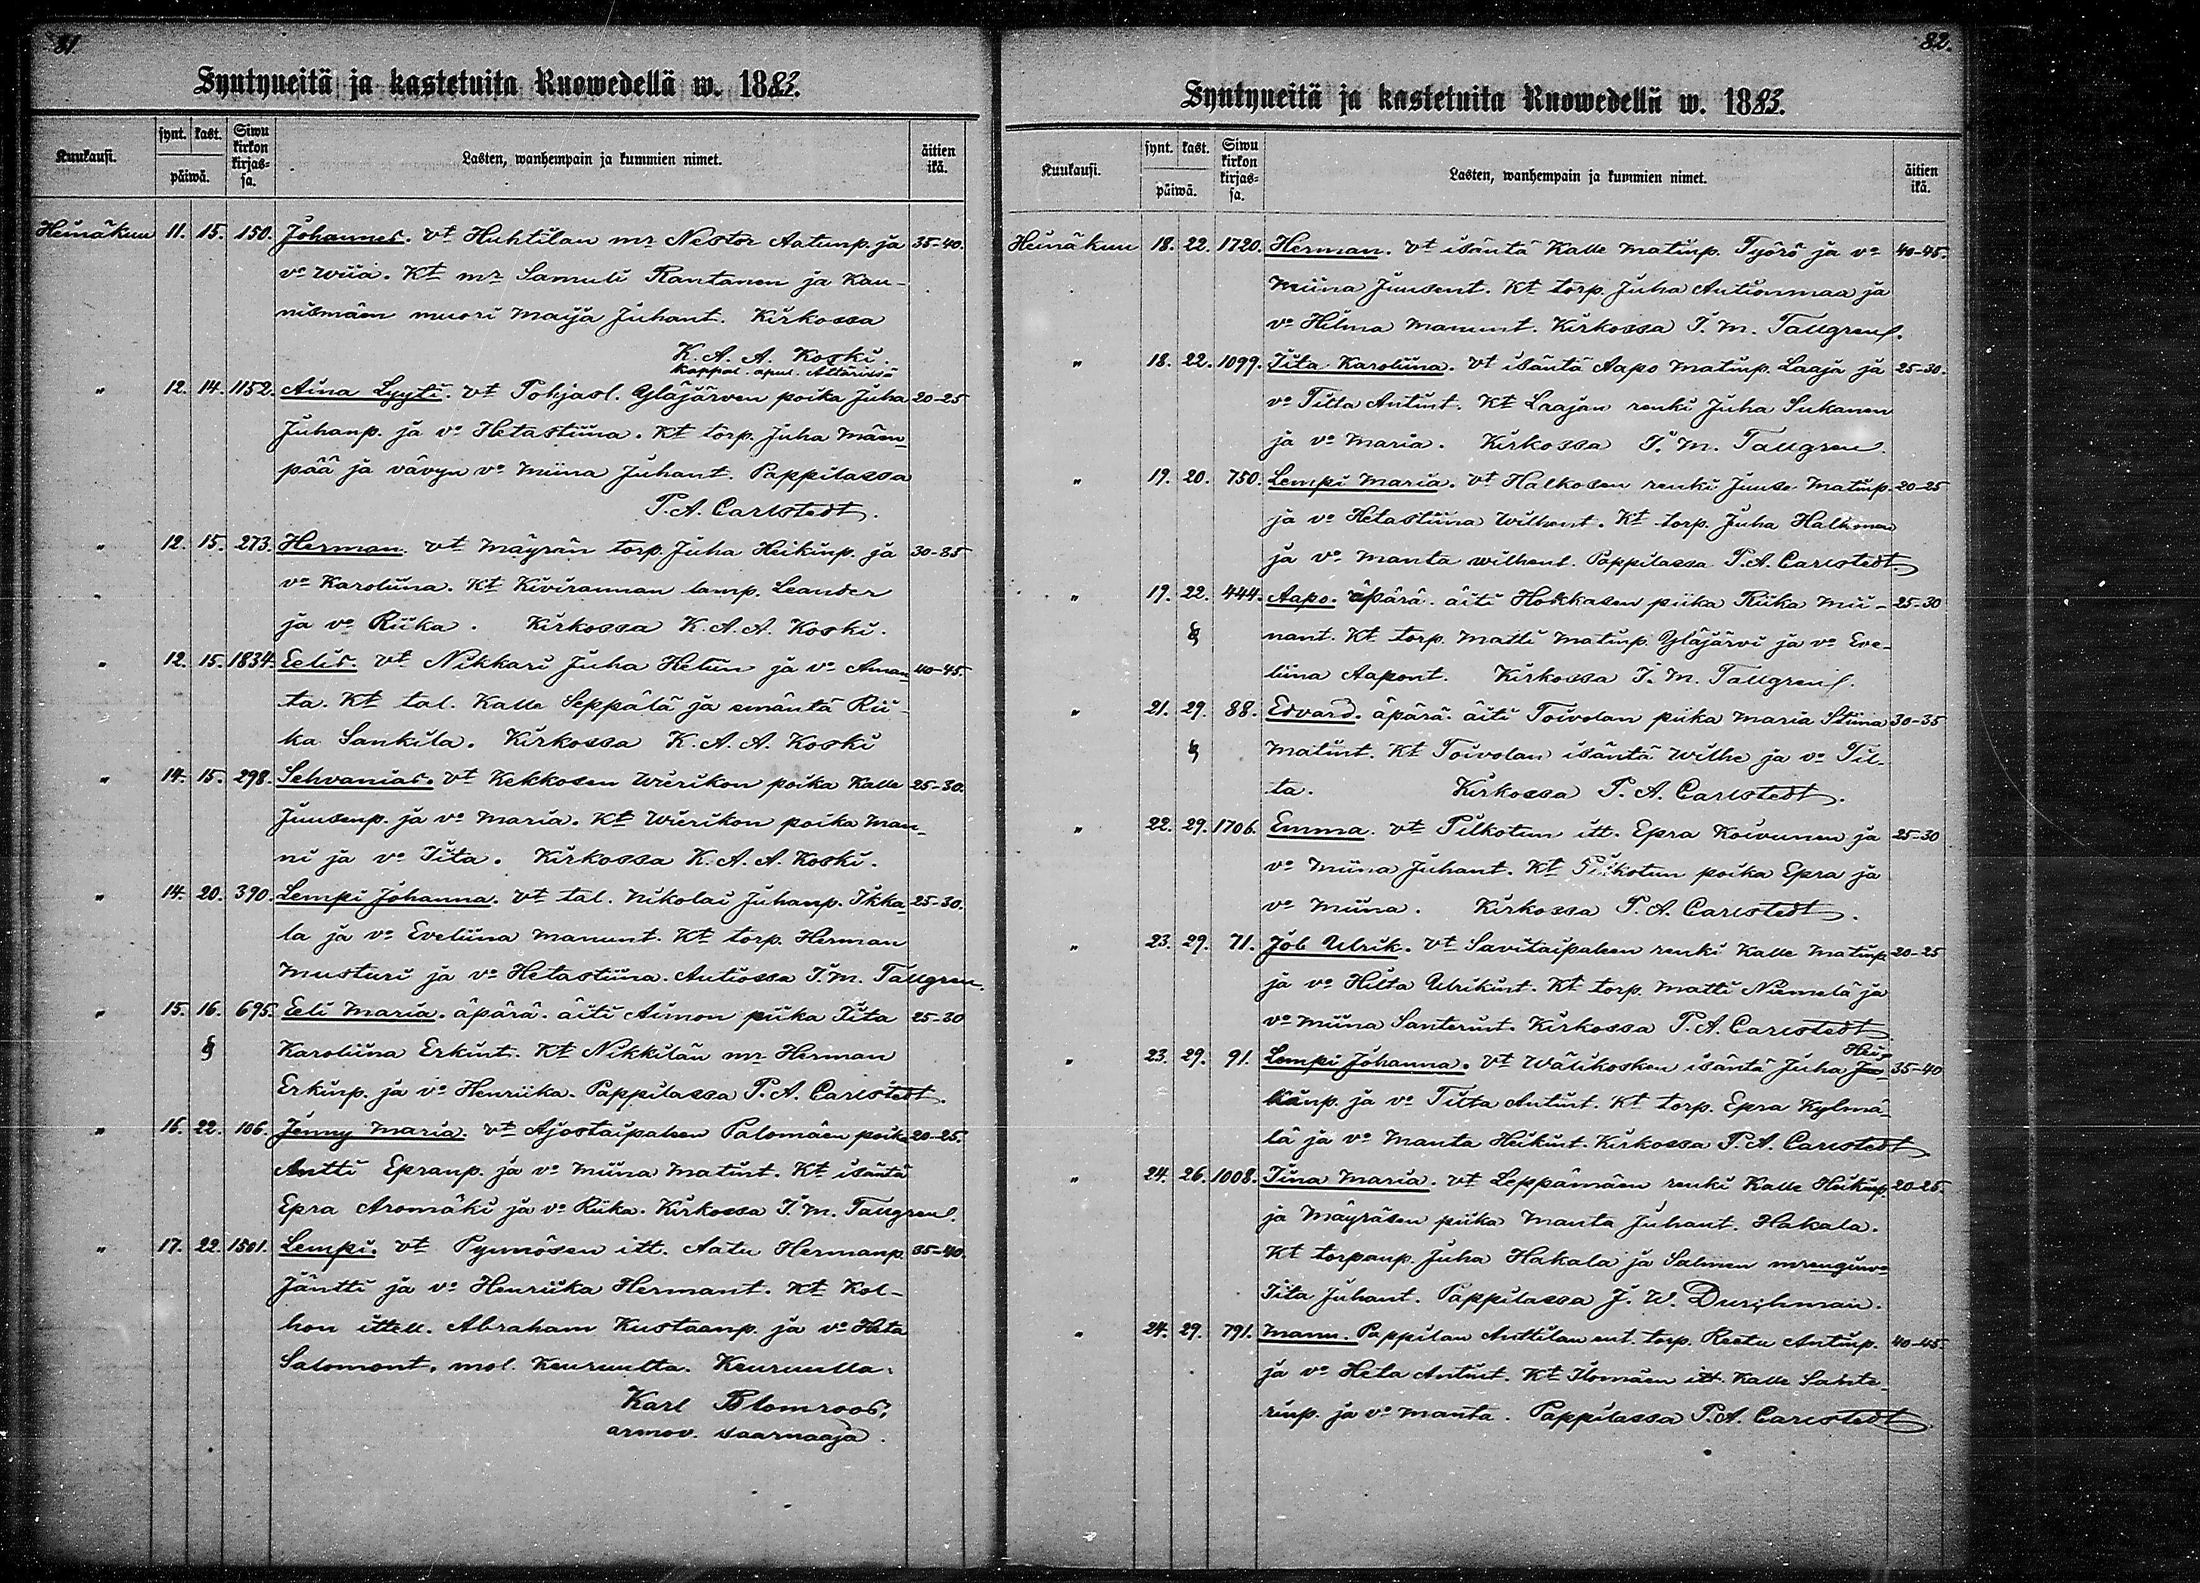 81.
Syntyneitä ja kastetuita Ruowedellä w. 1883.
Kuukausi.
synt. kast.
päiwä.
Siwu kirkon kirjas- sa.
Lasten, wanhempain ja kummien nimet.
äitien ikä.
Heinäkuu 11. 15. 150. Johannes. vt Huhtilan mr Nestor Aatunp. ja 35-40.
vo Wiia. Kt mr Samuli Rantanen ja Kau-
nismäen muori Maija Juhant. Kirkossa
K. A. A. Koski.
kappal. apul. Ättärissä
" 12. 14. 1152. Aina Lyyti. vt Pohjasl. Yläjärven poika Juha 20-25
Juhanp. ja vo Hetastiina. Kt torp. Juha Mäen-
pää ja vävyn vo Miina Juhant. Pappilassa
P. A. Carlstedt.
" 12. 15. 273. Herman. vt Mäyrän torp. Juha Heikinp. ja 30-35
vo Karoliina. Kt Kivirannan lamp. Leander
ja vo Riika. Kirkossa K. A. A. Koski.
" 12. 15. 1834. Eelis. vt Nikkari Juha Helin ja vo Aman- 40-45.
ta. Kt tal. Kalle Seppälä ja emäntä Rii-
ka Sankila. Kirkossa K. A. A. Koski
" 14. 15. 298. Sehvanias. vt Kekkosen Wierikon poika Kalle 25-30.
Juusenp. ja vo Maria. Kt Wierikon poika Man-
ni ja vo Iita. Kirkossa K. A. A. Koski.
" 14. 20. 390. Lempi Johanna. vt tal. Nikolai Juhanp. Ikka- 25-30.
la ja vo Eveliina Manunt. Kt torp. Herman
Musturi ja vo Hetastiina. Autiossa I. M. Tallgren.
" 15. 16. 695. Eeli Maria. äpärä. äiti Aimon piika Iita 25-30
Karoliina Erkint. Kt Nikkilän mr Herman
Erkinp. ja vo Henriika. Pappilassa P. A. Carlstedt.
" 16. 22. 106. Jenny Maria. vt Ajostaipaleen Palomäen poika 20-25.
Antti Epranp. ja vo Miina Matint. Kt isäntä
Epra Aromäki ja vo Riika. Kirkossa I. M. Tallgren.
" 17. 22. 1501. Lempi. vt Pynnösen itt. Aatu Hermanp. 35-40.
Jäntti ja vo Henriika Hermant. Kt Kol-
hon ittell. Abraham Kustaanp. ja vo Heta
Salomont. mol. Keuruulta. Keuruulla.
Karl Blomroos,
armov. saarnaaja.
82.
Syntyneitä ja kastetuita Ruowedellä w. 1883.
Kuukausi.
synt. kast.
päiwä.
Siwu kirkon kirjas- sa.
Lasten, wanhempain ja kummien nimet.
äitien ikä.
Heinäkuu 18. 22. 1720. Herman. vt isäntä Kalle Matinp. Työrö ja vo 40-45.
Miina Juusent. Kt torp. Juha Autionmaa ja
vo Hilma Manunt. Kirkossa I. M. Tallgren.
" 18. 22. 1099. Iita Karoliina. vt isäntä Aapo Matinp. Laaja ja 25-30.
vo Tilta Antint. Kt Laajan renki Juha Sukanen
ja vo Maria. Kirkossa I. M. Tallgren.
" 19. 20. 750. Lempi Maria. vt Halkosen renki Juuse Matinp. 20-25
ja vo Hetastiina Wilhent. Kt torp. Juha Halkonen
ja vo Manta Wilhent. Pappilassa P. A. Carlstedt
" 19. 22. 444. Aapo. äpärä. äiti Hokkasen piika Riika Mii- 25-30
nant. Kt torp. Matti Matinp. Yläjärvi ja vo Eve-
liina Aapont. Kirkossa I. M. Tallgren.
" 21. 29. 88. Edvard. äpärä. äiti Toivolan piika Maria Stiina 30-35
Matint. Kt Toivolan isäntä Wilhe ja vo Til-
ta. Kirkossa P. A. Carlstedt.
" 22. 29. 1706. Emma. vt Pilkotun itt. Epra Koivunen ja 25-30
vo Miina Juhant. Kt Pilkotun poika Epra ja
vo Miina. Kirkossa P. A. Carlstedt.
" 23. 29. 71. Job Ulrik. vt Savitaipaleen renki Kalle Matinp. 20-25
ja vo Hilta Ulrikint. Kt torp. Matti Niemelä ja
vo Miina Santerint. Kirkossa P. A. Carlstedt
" 23. 29. 91. Lempi Johanna. vt Wälikosken isäntä Juha Hei- 35-40
kinp. ja vo Tilta Antint. Kt torp. Epra Kylmä-
lä ja vo Manta Heikint. Kirkossa P. A. Carlstedt
" 24. 26. 1008. Iina Maria. vt Leppämäen renki Kalle Heikinp. 20-25.
ja Mäyräsen piika Manta Juhant. Hakala.
Kt torpanp. Juha Hakala ja Salmen mrenginvo
Iita Juhant. Pappilassa J. W. Durchman.
" 24. 29. 791. Mann. Pappilan Anttilan ent. torp. Reetu Antinp. 40-45.
ja vo Heta Antint. Kt Ilomäen itt. Kalle Sante-
rinp. ja vo Manta. Pappilassa P. A. Carlstedt